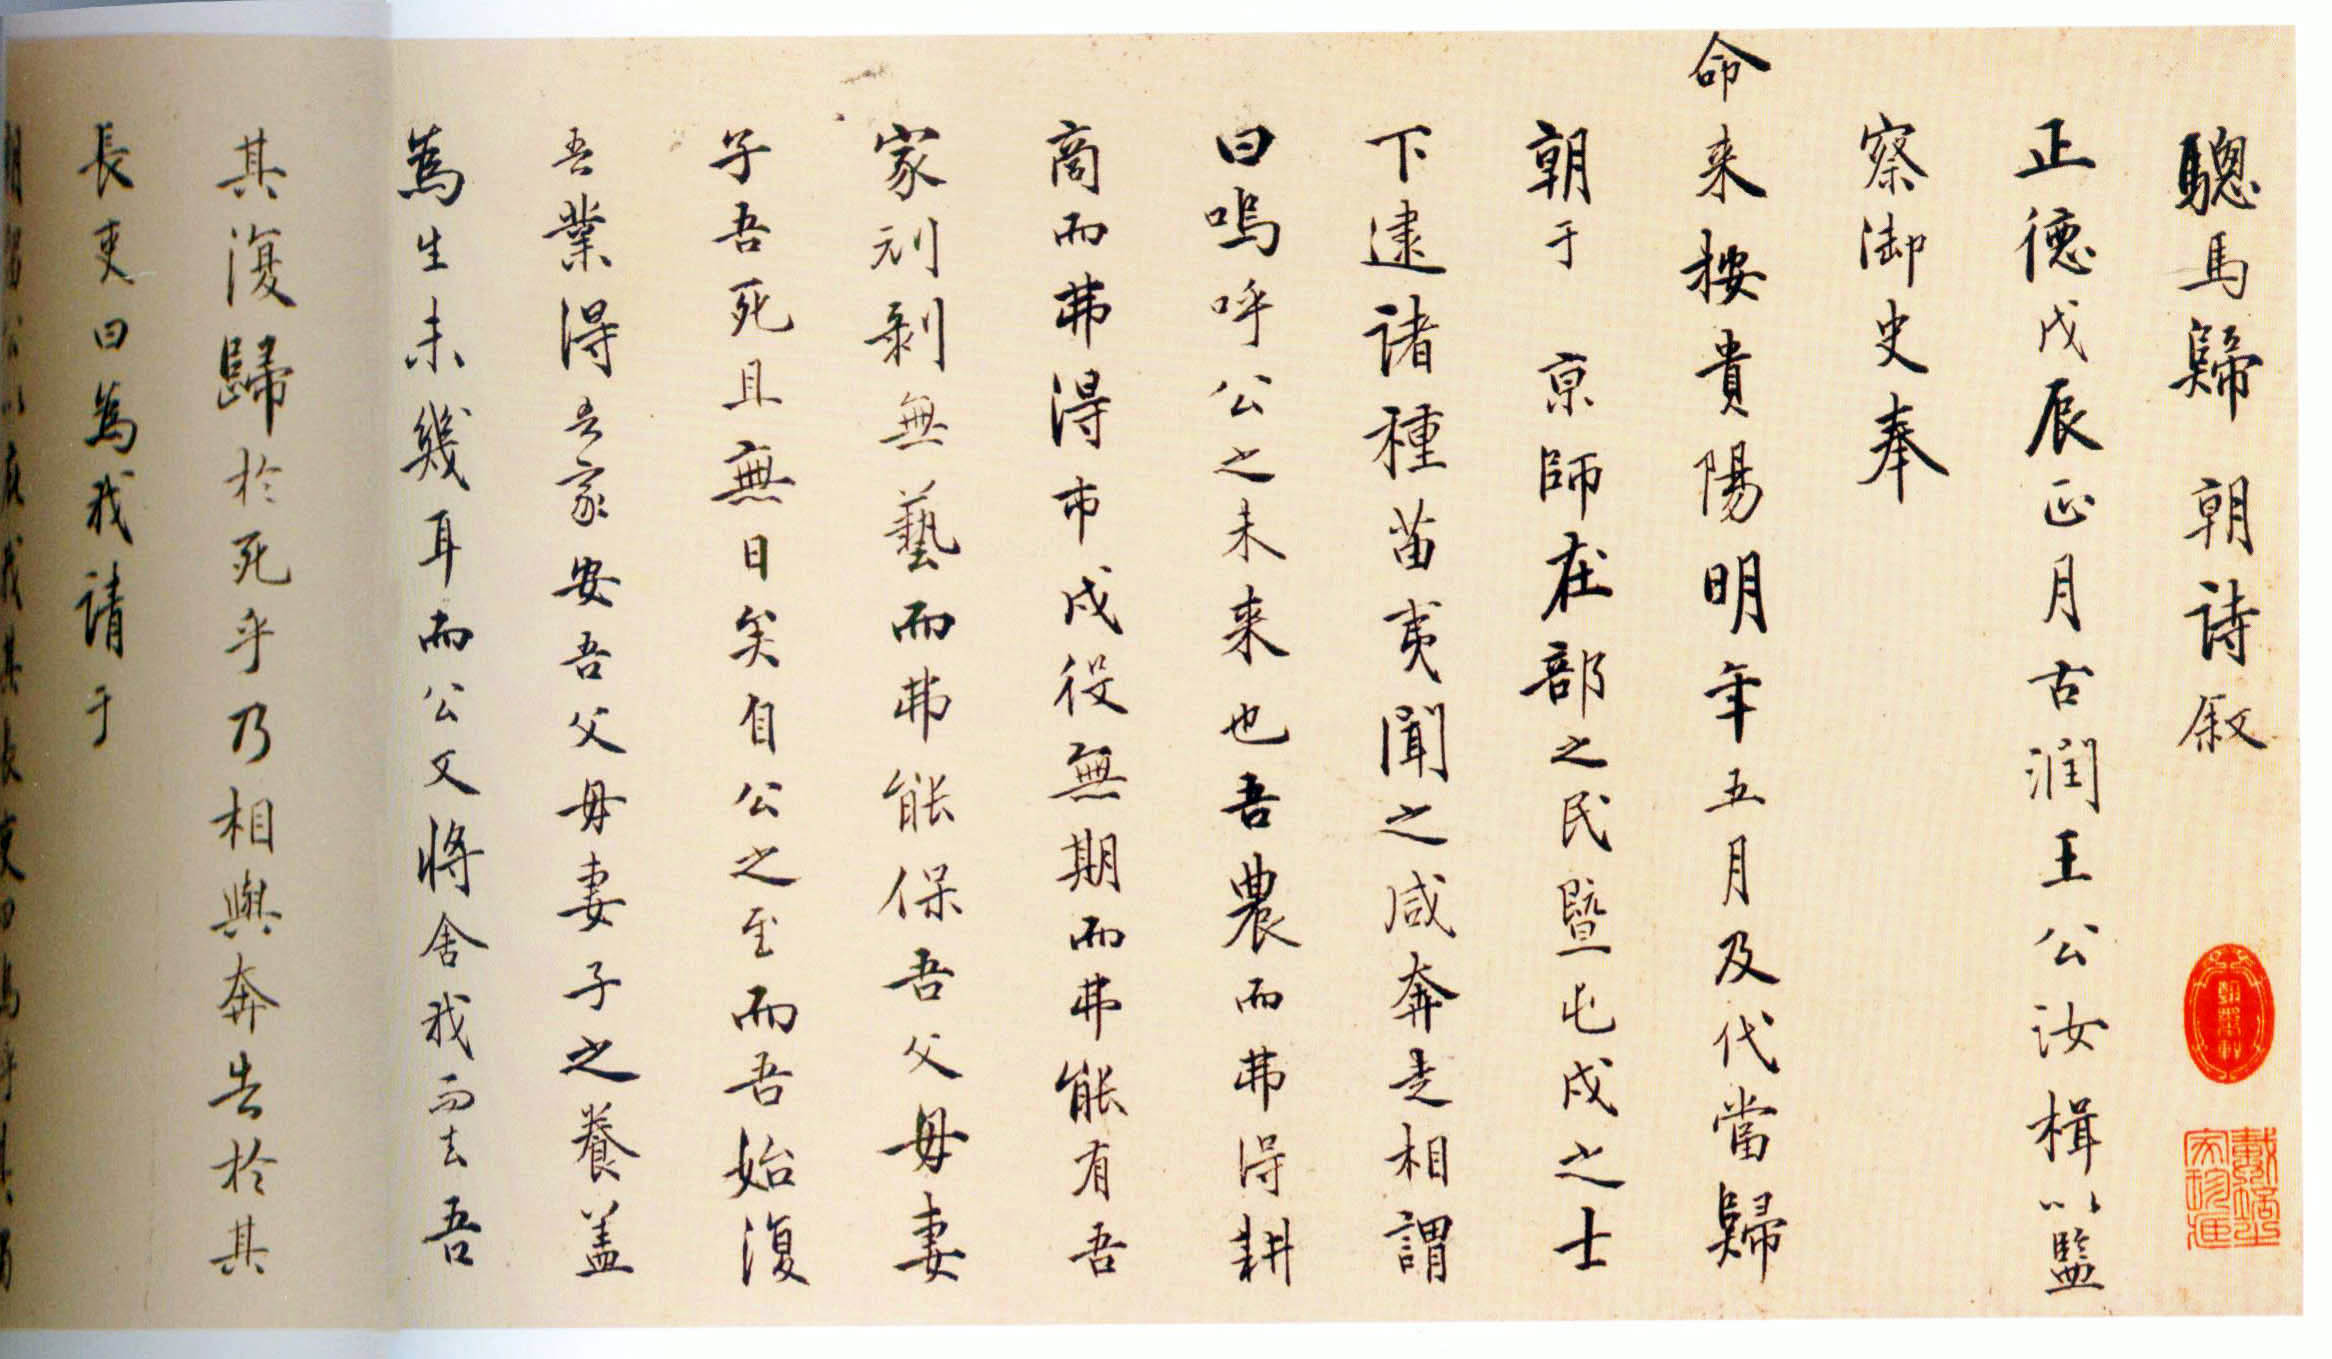 驄馬歸 朝詩叙
正德戊辰正月古潤王公汝楫以監
察御史奉
命来按貴陽明年五月及代當歸
朝于 京師在部之民暨屯戍之士
下逮諸種苗夷聞之咸奔走相謂
曰嗚呼公之未来也吾農而弗得耕
商而弗得市戍役無期而弗能有吾
家刓剥無藝而弗能保吾父母妻
子吾死且無日矣自公之至而吾始復
吾業得吾家安吾父母妻子之養盖
為生未幾耳而公又將舍我而去吾
其復歸於死乎乃相與奔告於其
長吏曰為我請于